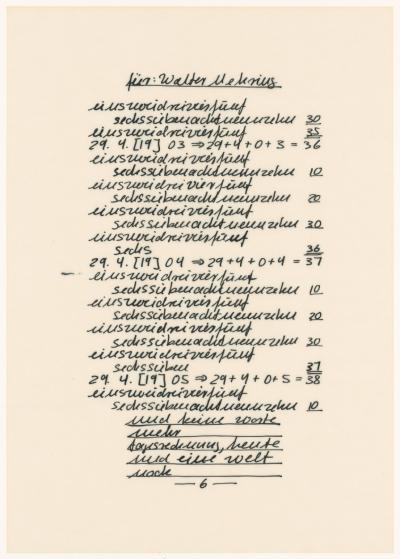 für: Walter Mehring
einszweidreivierfünf
sechssiebenachtneunzehn 30
einszweidreivierfünf 35
29. 4. [19] 03 ⇒ 29+4+0+3 = 36
einszweidreivierfünf
sechssiebenachtneunzehn 10
einszweidreivierfünf
sechssiebenachtneunzehn 20
einszweidreivierfünf
sechssiebenachtneunzehn 30
einszweidreivierfünf
sechs 36
29. 4. [19] 04 ⇒ 29+4+0+4 = 37
einszweidreivierfünf
sechssiebenachtneunzehn 10
einszweidreivierfünf
sechssiebenachtneunzehn 20
einszweidreivierfünf
sechssiebenachtneunzehn 30
einszweidreivierfünf
sechssieben 37
29. 4. [19] 05 ⇒ 29+4+0+5 = 38
einszweidreivierfünf
sechssiebenachtneunzehn 10
und keine worte
mehr
tagesrechnung, heute
und eine welt
noch
— 6 —